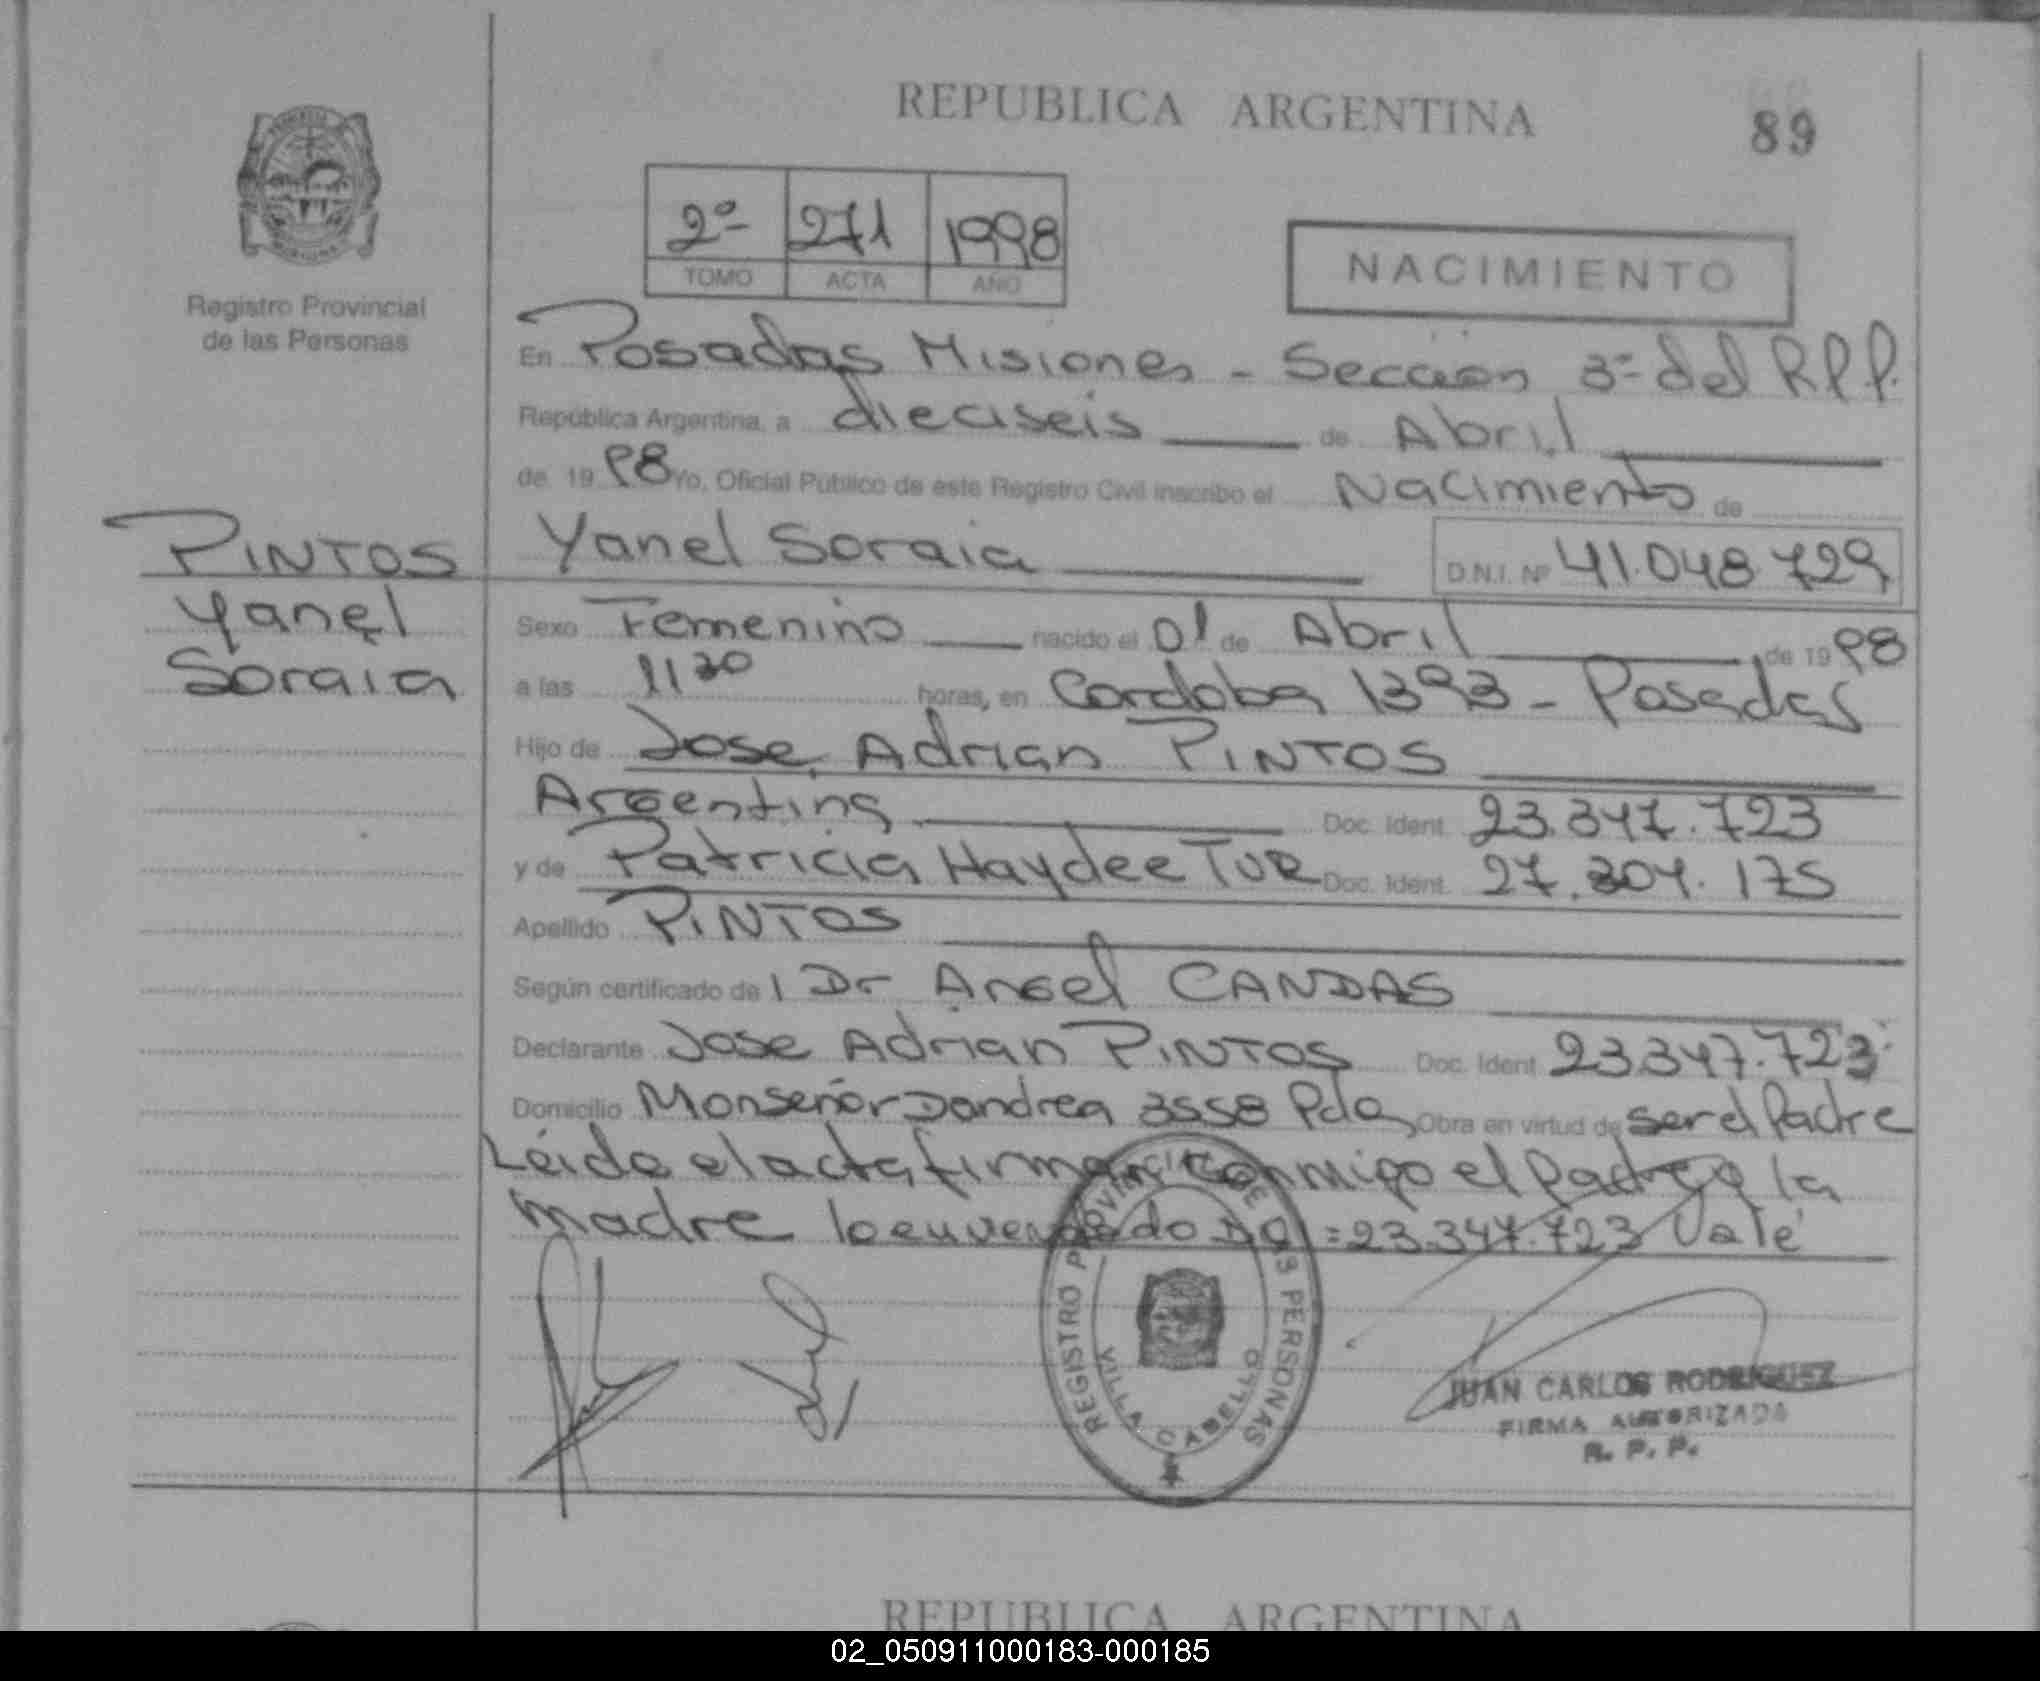 REPUBLICA ARGENTINA
89
2º 271 1998
TOMO ACTA AÑO
NACIMIENTO
Registro Provincial
de las Personas
En Posadas Misiones - Seccion 3ª del R.P.P.
República Argentina, a dieciseis de Abril
de 19 98 Yo, Oficial Público de este Registro Civil inscribo el Nacimiento de
PINTOS
Yanel
Soraia
Yanel Soraia D.N.I. Nº 41.048.729
Sexo Femenino nacido el 01 de Abril de 19 98
a las 11 30 horas, en Cordoba 1393 - Posadas
Hijo de Jose Adrian PINTOS
Argentina Doc. Ident. 23.347.723
y de Patricia Haydee TUR Doc. Ident. 27.304.175
Apellido PINTOS
Según certificado de l Dr Angel CANDAS
Declarante Jose Adrian PINTOS Doc. Ident. 23.347.723
Domicilio Monseñor Dandrea 3558 Pdas Obra en virtud de ser el Padre
Leida el acta firman conmigo el Padre y la
madre lo =23.347.723 Vale
REGISTRO PROVINCIAL DE LAS PERSONAS
VILLA CABELLO
JUAN CARLOS RODRIGUEZ
FIRMA AUTORIZADA
R. P. P.
REPUBLICA ARGENTINA
02_050911000183-000185